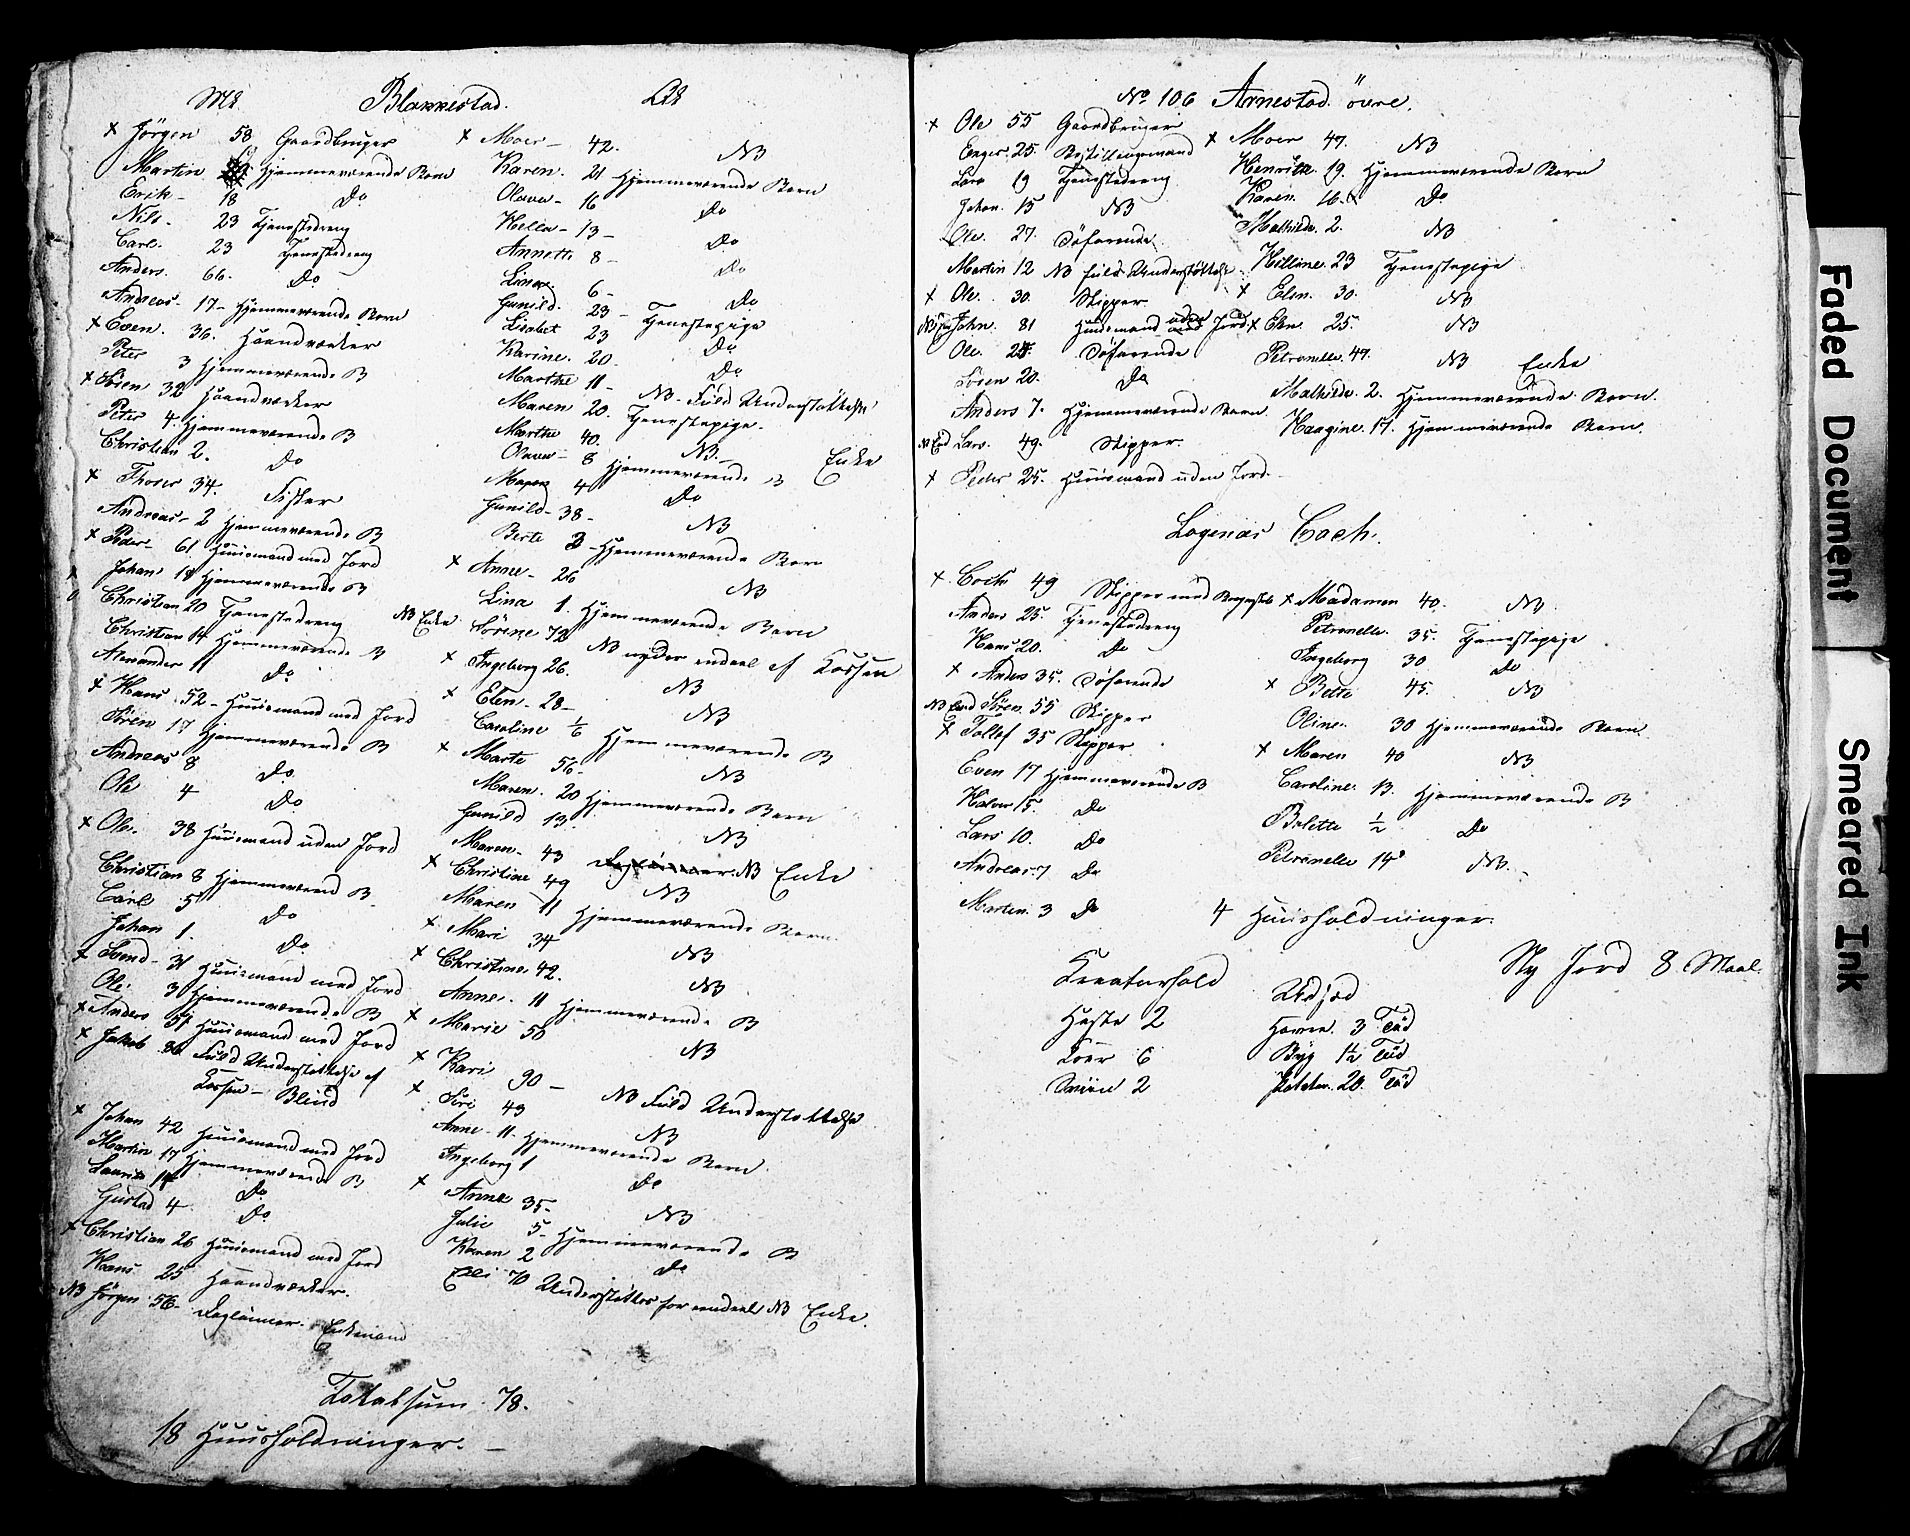 Blakkestad.
× Jörgen 58 Gaardbruger
Martin Hjemmeværende Børn
Erik - 18 Do
Nils - 23 Tjenestedreng
Carl. 23 Tjenestedreng
Anders. 66. Do
Andreas - 17 - Hjemmeværende Børn
× Even. 36. Haandværker
Peter 3 Hjemmeværende B
× Sören 32 Haandværker
Peter 4. Hjemmeværende B
Christian 2. Do
× Thoser 34. Fisker
Andreas - 2 Hjemmeværende B
× Peder - 61 Huusmand med Jord
Johan 18 Hjemmeværende B
Christian 20 Tjenestedreng
Christian 14 Hjemmeværende B
Alexander 11 Do
× Hans 52 - Huusmand med Jord
Sören 17 Hjemmeværende B
Andreas 8 Do
Ole 4 Do
× Ole. 38 Huusmand uden Jord
Christian 8 Hjemmeværend B
Carl 5 Do
Johan 1. Do
× Svend - 31 Huusmand med Jord
Ole. 3 Hjemmeværende B
× Anders 51 Huusmand med Jord
× Jakob 36 Fuld Understøttelse af
Kassen - Blind
× Johan 42 Huusmand med Jord
Martin 17 Hjemmeværende B
Laurits 14 Do
Gustad 4 Do
× Christian 26 Huusmand med Jord
Hans 25 Haandværker.
NB Jörgen 56 - Daglönner. Enkemand
× Moer - 42. NB
Karen. 21 Hjemmeværende Børn
Olava - 16 Do
Hella - 13 - Do
Annette 8 - Do
Linore. 6 - Do
Gunild. 23 - Tjenestepige
Lisabet 23 Do
Karine. 20 - Do
Marthe 11 - NB - Fuld Understøttelse
Maren 20. Tjenestepige -
Marthe 40. NB - Enke
Olava - 8 Hjemmeværende B
Maren 4 Do
Gunild - 38 - NB
Berte 3 - Hjemmeværende Børn
× Anne - 26 NB
Lina 1. Hjemmeværende Børn
NB Enke Sörine 72 NB nyder endeel af Kassen
× Ingeborg 26. NB
× Elen - 28 - NB
Caroline 1/6 Hjemmeværende B
× Marte 56 - NB
Maren. 20 Hjemmeværende Børn
Gunild 13.
Maren - 43 NB Enke
× Christine 49 NB
Maren 11 Hjemmeværende Børn.
× Mari 34 NB
× Christine 42. NB
Anne. 11 Hjemmeværende B
× Marie - 50 NB
× Kari 90 - NB Fuld Understøttelse
× Siri 43 NB
Anne - 11 - Hjemmeværende Børn
Ingeborg 1 Do
× Anna 35 - NB
Julie 5 - Hjemmeværende B
Karen 2 Do
70 Understøttes for eendeel NB Enke.
Totalsum 78.
18 Huusholdninger. -
No 106 Arnestad övre.
× Ole 55 Gaardbruger
25.
Lars 19 Tjenestedreng
Johan. 15 NB
Ole. 27. Söfarende
Martin 12 NB fuld Understøttelse
× Ole. 30. Skipper
John. 81 Huusmand uden Jord
Ole. Söfarende
Sören 20. Do
Anders 7. Hjemmeværende Børn
Lars. 49. Skipper.
× Peder 25. Huusmand uden Jord -
× Moer 47. NB
Henrikke. 19. Hjemmeværende Børn
Karen. 16. Do
Mathilde. 2. NB
Helline. 23 Tjenestepige
× Elen. 30. NB
× Elen. 25. NB
Petronelle. 47. NB Enke
Mathilde. 2. Hjemmeværende Børn.
Haagine. 17. Hjemmeværende Børn.
Coch.
× Coch 49 Skipper med
Anders 25. Tjenestedreng
Hans 20. Do
× Anders 35. Söfarende
Sören 55 Skipper
× Tollef 35 Skipper
Even 17 Hjemmeværende B
Halvor 15. Do
Lars 10. Do
Andreas 7 Do
Martin 3 Do
× Madamen 40. NB
Petronelle. 35. Tjenestepige
Ingeborg 30 Do
× Bette 45. NB
Oline. 30 Hjemmeværende Børn
× Maren 40 NB
Caroline. 13. Hjemmeværende B
Bolette 1/2 Do
Petronelle 14 NB.
4 Huusholdninger.
Ny Jord 8 Maal.
Kreaturhold
Heste 2
Köer 6
Sviin 2
Udsæd
Havre. 3 Töd
Byg 1½ Töd
Poteter. 20. Töd
Faded Document
Smeared Ink